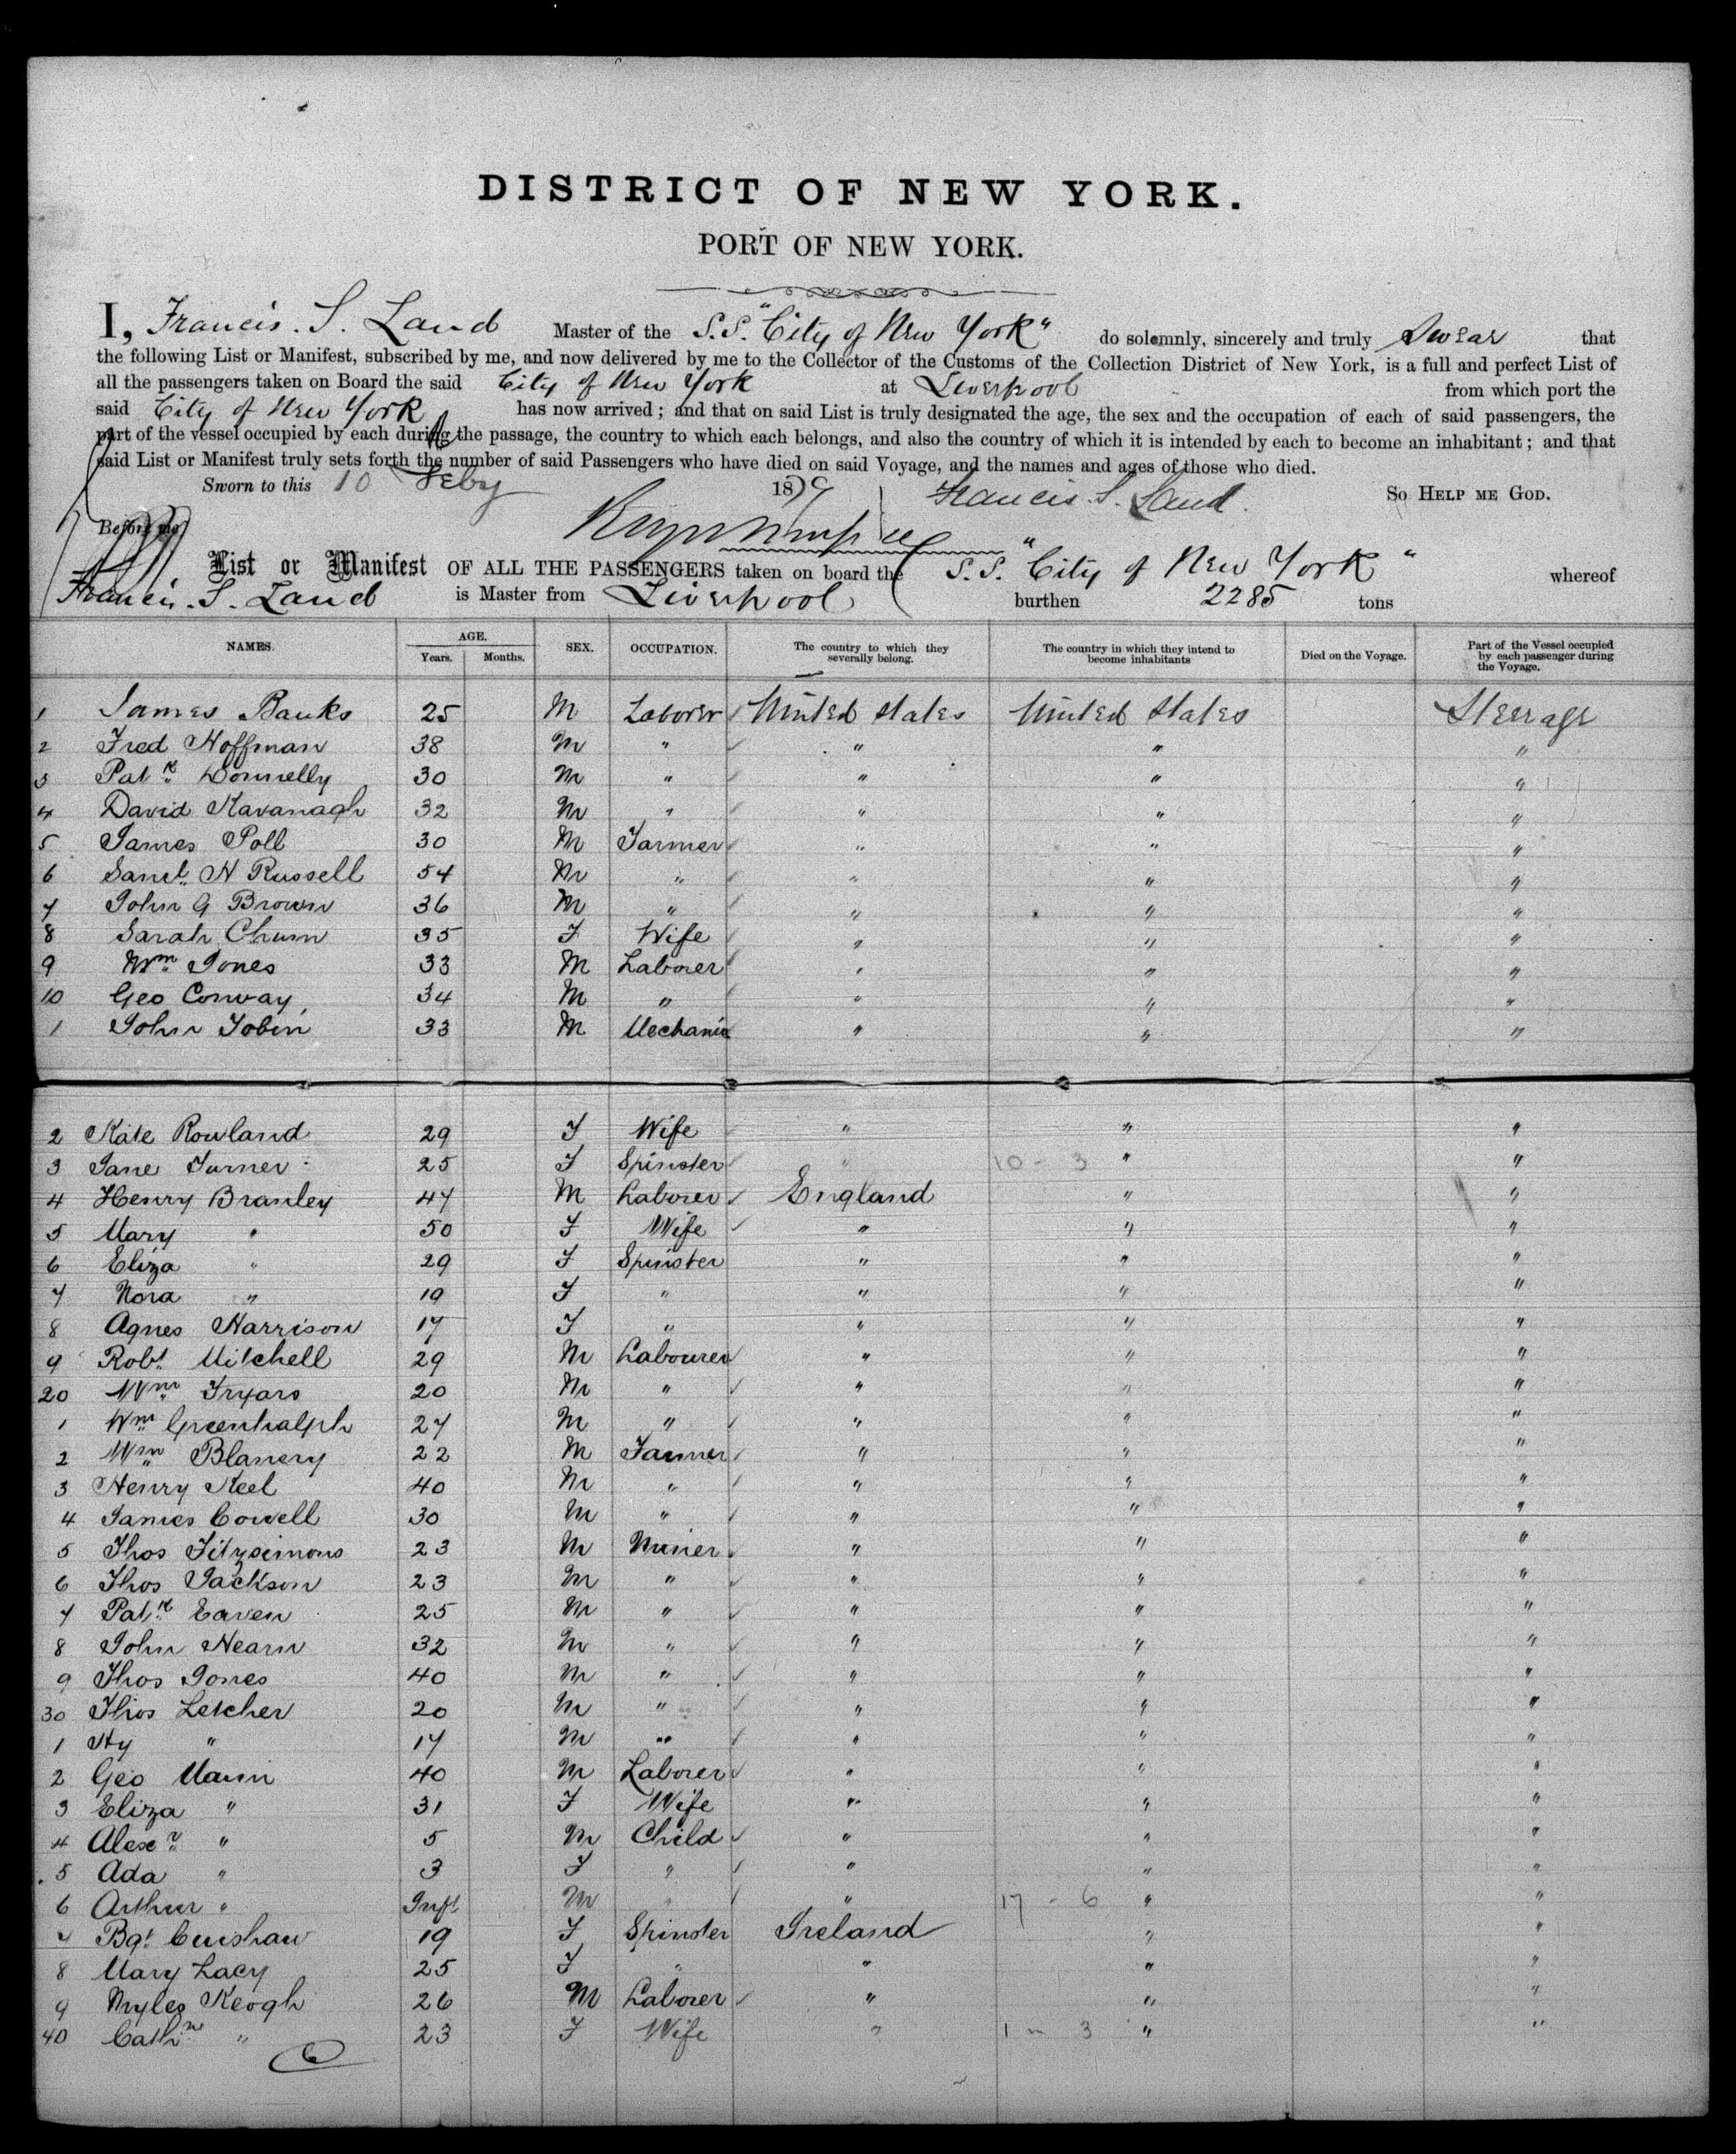 DISTRICT OF NEW YORK.
PORT OF NEW YORK.
I, Francis. S. Land Master of the S.S. "City of New York" do solemnly, sincerely and truly Swear that
the following List or Manifest, subscribed by me, and now delivered by me to the Collector of the Customs of the Collection District of New York, is a full and perfect List of
all the passengers taken on Board the said City of New York at Liverpool from which port the
said City of New York has now arrived; and that on said List is truly designated the age, the sex and the occupation of each of said passengers, the
part of the vessel occupied by each during the passage, the country to which each belongs, and also the country of which it is intended by each to become an inhabitant; and that
said List or Manifest truly sets forth the number of said Passengers who have died on said Voyage, and the names and ages of those who died.
Sworn to this 10 Feby 1879 Francis. S. Land. So HELP ME GOD.
Before me
List or Manifest OF ALL THE PASSENGERS taken on board the S.S. "City of New York" whereof
Francis. S. Land is Master from Liverpool burthen 2285 tons
NAMES. AGE. Years. Months. SEX. OCCUPATION. The country to which they severally belong. The country in which they intend to become inhabitants Died on the Voyage. Part of the Vessel occupied by each passenger during the Voyage.
1 James Banks 25 M Laborer United States United States Steerage
2 Fred Hoffman 38 M " " " "
3 Patk Donnelly 30 M " " " "
4 David Kavanagh 32 M " " " "
5 James Poll 30 M Farmer " " "
6 Saml. H Russell 54 M " " " "
7 John G Brown 36 M " " " "
8 Sarah Chum 35 F Wife " " "
9 Wm Jones 33 M Laborer " " "
10 Geo Conway 34 M " " " "
1 John Tobin 33 M Mechanic " " "
2 Kate Rowland 29 F Wife " " "
3 Jane Turner 25 F Spinster " 10 - 3 " "
4 Henry Branley 47 M Laborer England " "
5 Mary " 50 F Wife " " "
6 Eliza " 29 F Spinster " " "
7 Nora " 19 F " " " "
8 Agnes Harrison 17 F " " " "
9 Robt. Mitchell 29 M Labourer " " "
20 Wm Fryars 20 M " " " "
1 Wm Greenhalph 27 M " " " "
2 Wm Blanery 22 M Farmer " " "
3 Henry Keel 40 M " " " "
4 James Cowell 30 M " " " "
5 Thos Fitzsimons 23 M Miner " " "
6 Thos Jackson 23 M " " " "
7 Patk Eaven 25 M " " " "
8 John Hearn 32 M " " " "
9 Thos Jones 40 M " " " "
30 Thos Letcher 20 M " " " "
1 Hy " 17 M " " " "
2 Geo Mann 40 M Laborer " " "
3 Eliza " 31 F Wife " " "
4 Alexr " 5 M Child " " "
5 Ada " 3 F " " " "
6 Arthur " Inft M " " 17 - 6 " "
7 Bgt. Cuishaw 19 F Spinster Ireland " "
8 Mary Lacy 25 F " " " "
9 Myles Keogh 26 M Laborer " " "
40 Cathne " 23 F Wife " 1 - 3 " "